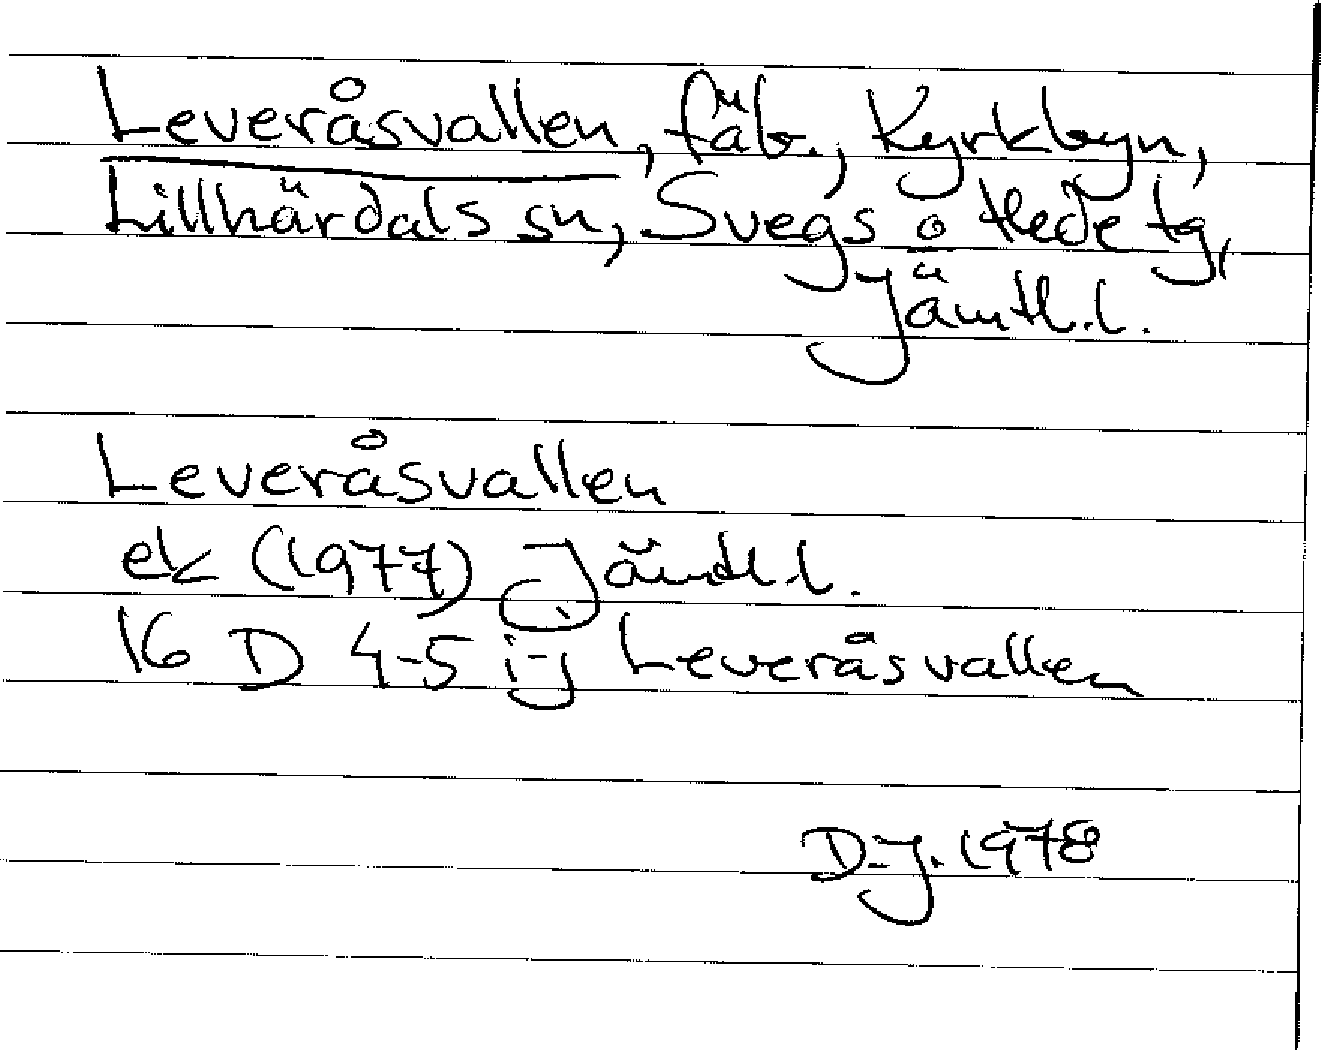 Leveråsvallen, fäb., Kyrkbyn,
Lillhärdals sn, Svegs o Hede tg,
Jämtl.l.
Leveråsvallen
ek (1977) Jämtl.l.
16 D 4-5 i-j Leveråsvallen
D-J. 1978